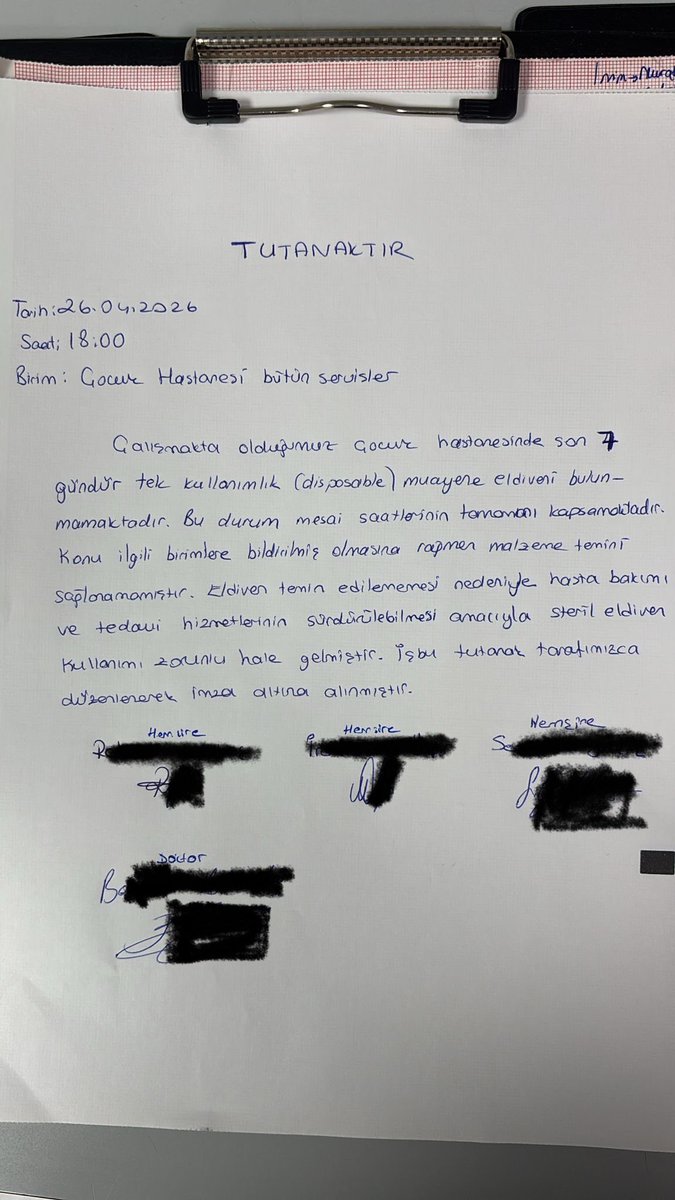 TUTANAKTIR
Tarih: 26.04.2026
Saat; 18:00
Birim: Çocuk Hastanesi bütün servisler
Çalışmakta olduğumuz çocuk hastanesinde son 7
gündür tek kullanımlık (disposable) muayene eldiveni bulun-
mamaktadır. Bu durum mesai saatlerinin tamamını kapsamaktadır.
Konu ilgili birimlere bildirilmiş olmasına rağmen malzeme temini
sağlanamamıştır. Eldiven temin edilememesi nedeniyle hasta bakımı
ve tedavi hizmetlerinin sürdürülebilmesi amacıyla steril eldiven
kullanımı zorunlu hale gelmiştir. İşbu tutanak tarafımızca
düzenlenerek imza altına alınmıştır.
Hemşire Hemşire Hemşire
Doktor